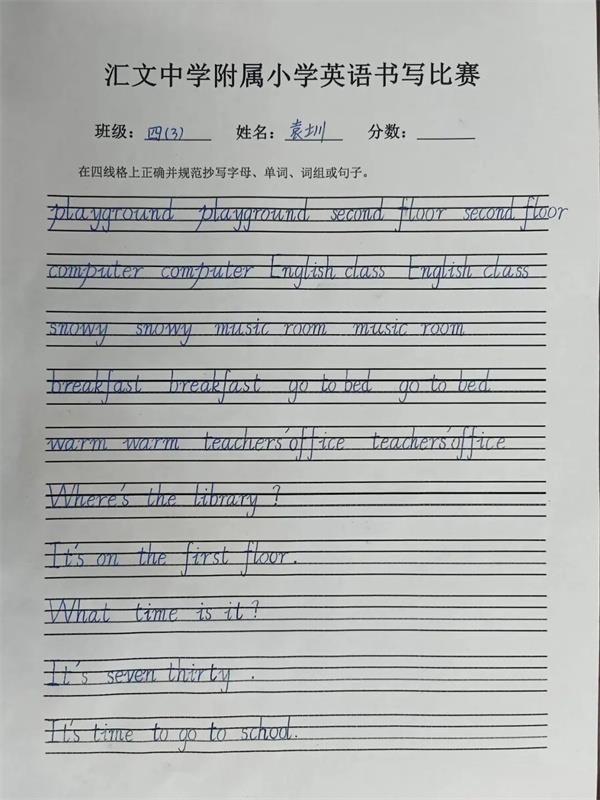 汇文中学附属小学英语书写比赛
班级：四(3) 姓名：袁圳 分数：
在四线格上正确并规范抄写字母、单词、词组或句子。
playground playground second floor second floor
computer computer English class English class
snowy snowy music room music room
breakfast breakfast go to bed go to bed
warm warm teachers' office teachers' office
Where's the library ?
It's on the first floor.
What time is it?
It's seven thirty .
It's time to go to school.